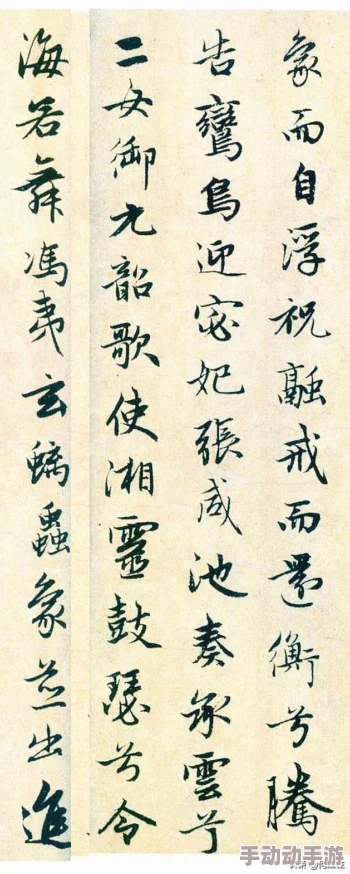 象而自浮祝融戒而還衡兮騰
告鸞鳥迎宓妃張咸池奏承雲兮
二女御九韶歌使湘靈鼓瑟兮令
海若舞馮夷玄螭蟲象並出進
手动动手游